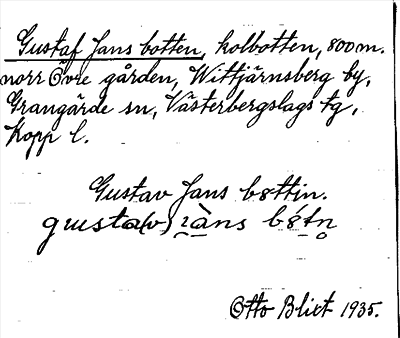 Gustaf Jans botten, kolbotten, 800 m.
norr Övre gården, Wittjärnsberg by,
Grangärde sn, Västerbergslags tg,
Kopp l.
Gustav Jans bottin.
gusta(v) jàns
Otto Blixt 1935.